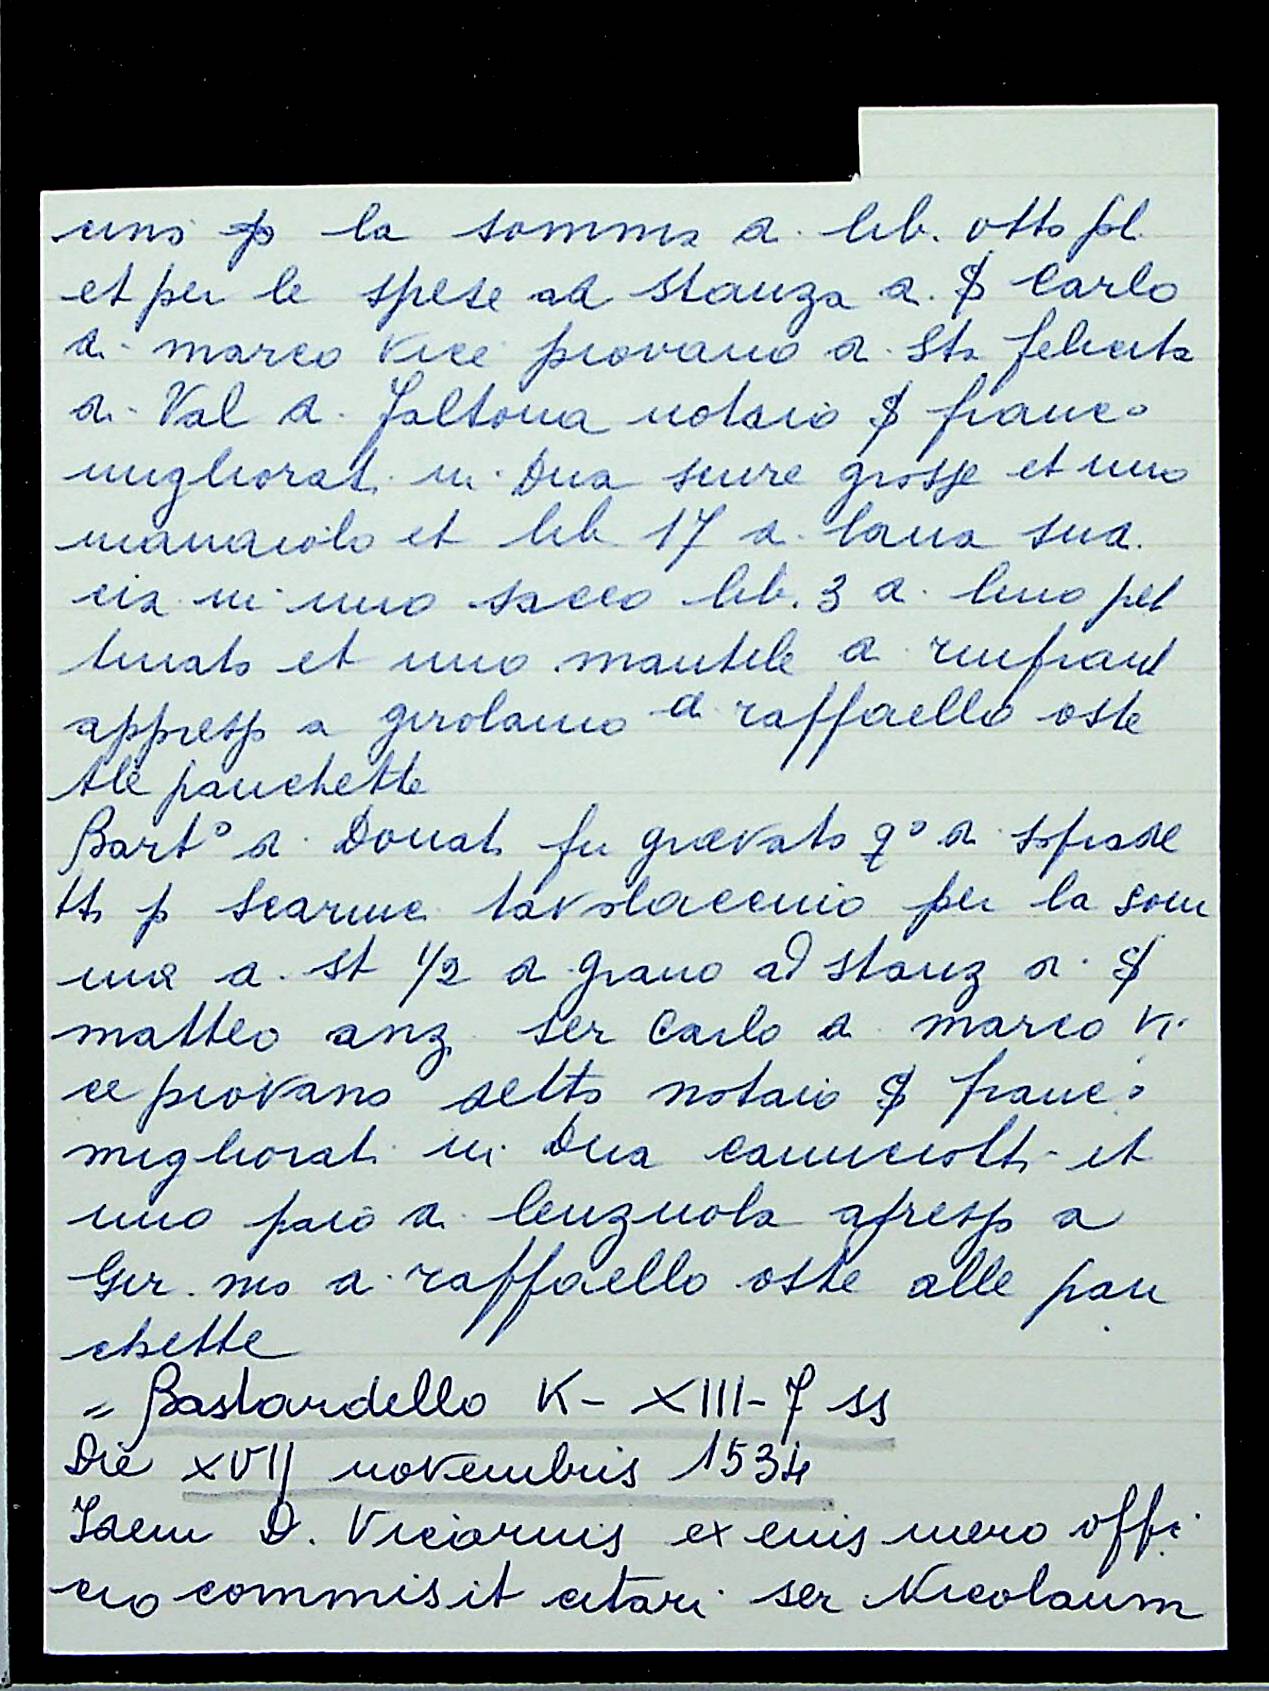 cino p la somma di lib. otto pl.
et per le spese ad stanza di $ Carlo
di marco vice piovano di Sta felicita
di Val di Faltona notaio $ franc°
migliorati in Dua scure grosse et uno
mannaiolo et lib 17 di lana sud.
cia in uno sacco lib. 3 di lino pet
tinato et uno mantile di rinfrand
appresso a girolamo di raffaello oste
alle panchette
Bart° di Donati fu gravato q° di sopradec
tto p Scarmi tavolaccino per la som
ma di st 1/2 di grano ad stanz di $
matteo anz ser Carlo di marco vi
ce piovano detto notaio $ franc°
migliorati in Dua cannicciotti et
uno paio di lenzuola apresso a
Gir.mo di raffaello oste alle pan
chette
" Bastardello K - XIII - 7 ss
Die XVIJ novembris 1534
Idem D. Vicarius ex eius mero offi
cio commisit citari ser Nicolaum